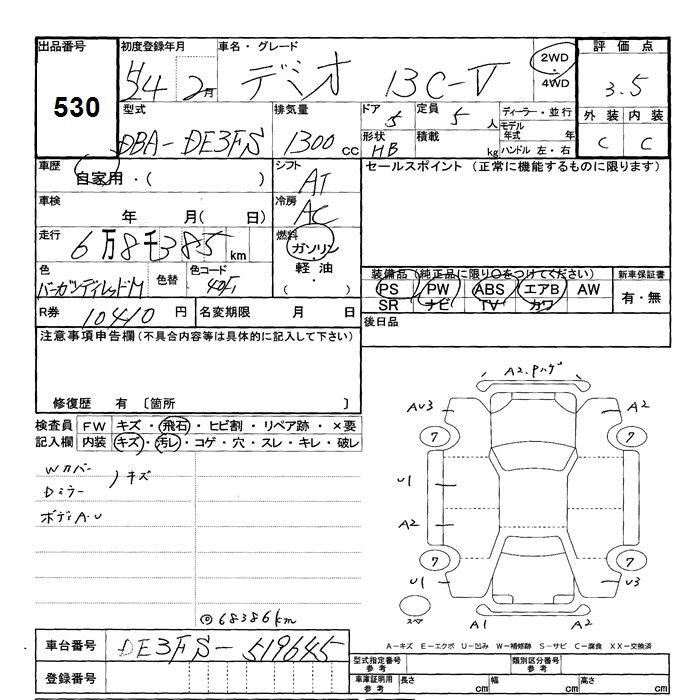 出品番号 初度登録年月 車名・グレード 評価点
530 H4 2月 デミオ 13C-V 2WD・4WD 3.5
型式 排気量 ドア 定員 ディーラー・並行 外装 内装
DBA-DE3FS 1300cc 5 5人 モデル年式 年 C C
形状 積載 ハンドル 左・右
HB kg
車歴 シフト セールスポイント (正常に機能するものに限ります)
自家用・( ) AT
車検 冷房
年 月( 日) AC
走行 燃料
6万8千385km ガソリン・軽油・( )
色 色替 色コード 装備品(純正品に限り○をつけてください) 新車保証書
バーガンディレッドM PS PW ABS エアB AW 有・無
SR ナビ TV カワ
R券 10410円 名変期限 月 日 後日品
注意事項申告欄(不具合内容等は具体的に記入して下さい)
修復歴 有 〔箇所 〕
検査員 FW キズ・飛石・ヒビ割・リペア跡・×要
記入欄 内装 キズ・汚レ・コゲ・穴・スレ・キレ・破レ
Wカバー
Dミラー )キズ
ボディA.U
◎68386km
A2.Pハゲ
AU3 A2
7 7
U1
A2
7 7
U1 U3
スペア A1 A2
A-キズ E-エクボ U-凹み W-補修跡 S-サビ C-腐食 XX-交換済
車台番号 DE3FS-519645
型式指定番号 参考 類別区分番号 参考
登録番号 車庫証明用 参考 長さ cm 幅 cm 高さ cm